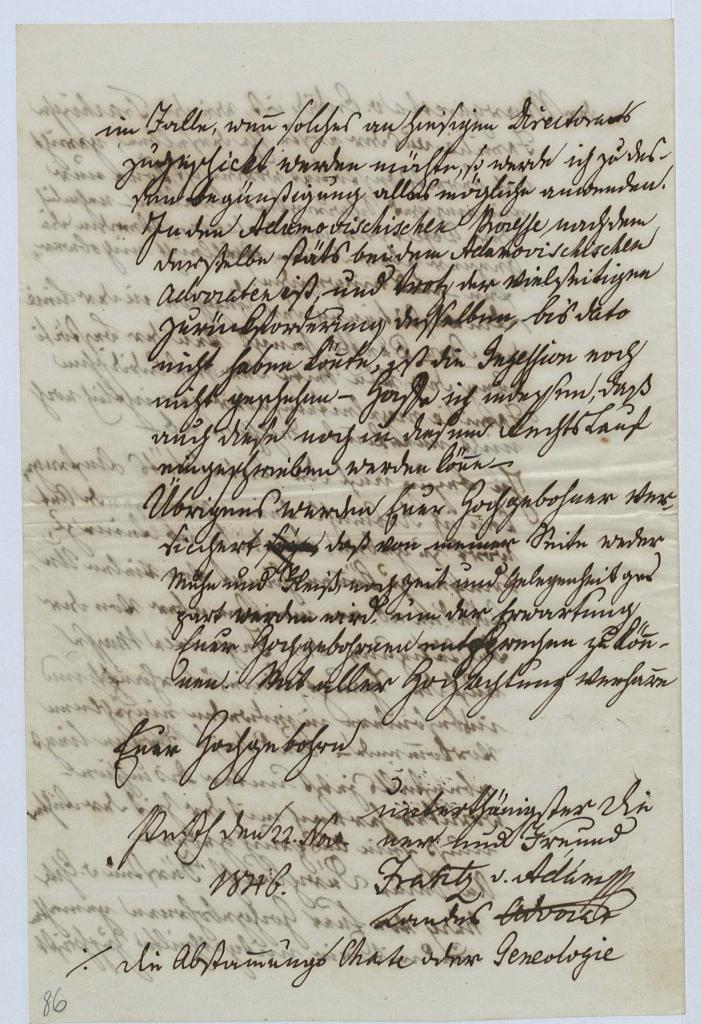 im Falle, wenn solches an hiesigen Directorats
zugeschickt werden möchte, so werde ich zu des-
sen begünstigung alles mögliche anwenden.
In den Adamovischischen Processe nachdem
derselbe stäts bei dem Adamovischischen
Advocaten ist, und trotz der vielseitigen
zurückforderung desselben, bis dato
nicht haben könte, ist die noch
nicht geschehen – Hoffe ich indessen, daß
auch diese noch in diesem Rechts Lauf
eingeschrieben werden könne –
Übrigens werden Euer Hochgebohrner ver-
sichert daß von meiner Seite weder
Mühe und Fleiß noch zeit und Gelegenheit ges
part werden wird, um der Erwartung
Euer Hochgebohrnen entsprechen zu kön-
nen. Mit aller Hochachtung verharre
Euer Hochgebohrn
unterthänigster Die
Pesth den 22. Nov. ner und Freund
1846. Frantz v. Adám
Landes Advocat
./. die Abstammungs Charte oder Geneologie
86